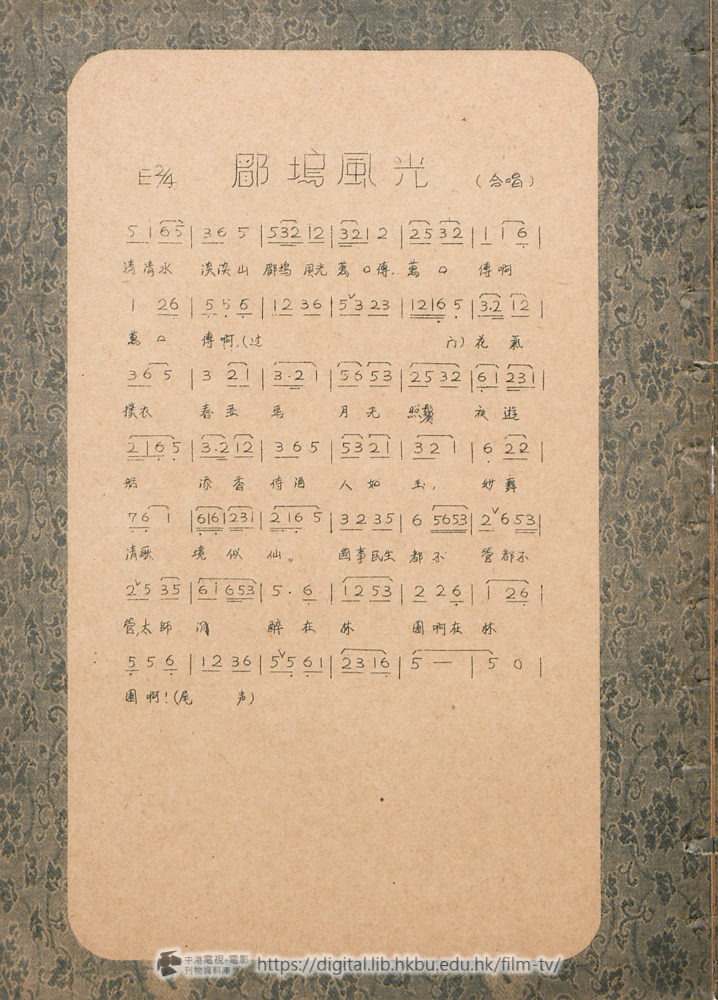 E2/4 郿塢風光 (合唱)
5 1 6 5 | 3 6 5 | 5 3 2 1 2 | 3 2 1 2 | 2 5 3 2 | 1 1 6 |
清清水 淡淡山 郿塢風光萬口傳.萬口 傳啊
1 2 6 | 5 5 6 | 1 2 3 6 | 5ˇ3 2 3 | 1 2 1 6 5 | 3.2 1 2 |
萬口 傳啊.(过 门)花氣
3 6 5 | 3 2 1 | 3.2 1 | 5 6 5 3 | 2 5 3 2 | 6 1 2 3 1 |
撲衣 春 馬 月光 照 夜遊
2 1 6 5 | 3.2 1 2 | 3 6 5 | 5 3 2 1 | 3 2 1 | 6 2 2 |
添香侍酒 人如玉, 妙舞
7 6 1 | 6 1 6 1 2 3 1 | 2 1 6 5 | 3 2 3 5 | 6 5 6 5 3 | 2ˇ6 5 3 |
清歌 境似 仙。 國事民生 都不 管都不
2ˇ5 3 5 | 6 1 6 5 3 | 5 . 6 . | 1 2 5 3 | 2 2 6 | 1 2 6 |
管,太師 醉在林 園啊在林
5 5 6 | 1 2 3 6 | 5ˇ5 6 1 | 2 3 1 6 | 5 — | 5 0 |
園啊!(尾 声)
中港電視-電影
刊物資料庫
https://digital.lib.hkbu.edu.hk/film-tv/